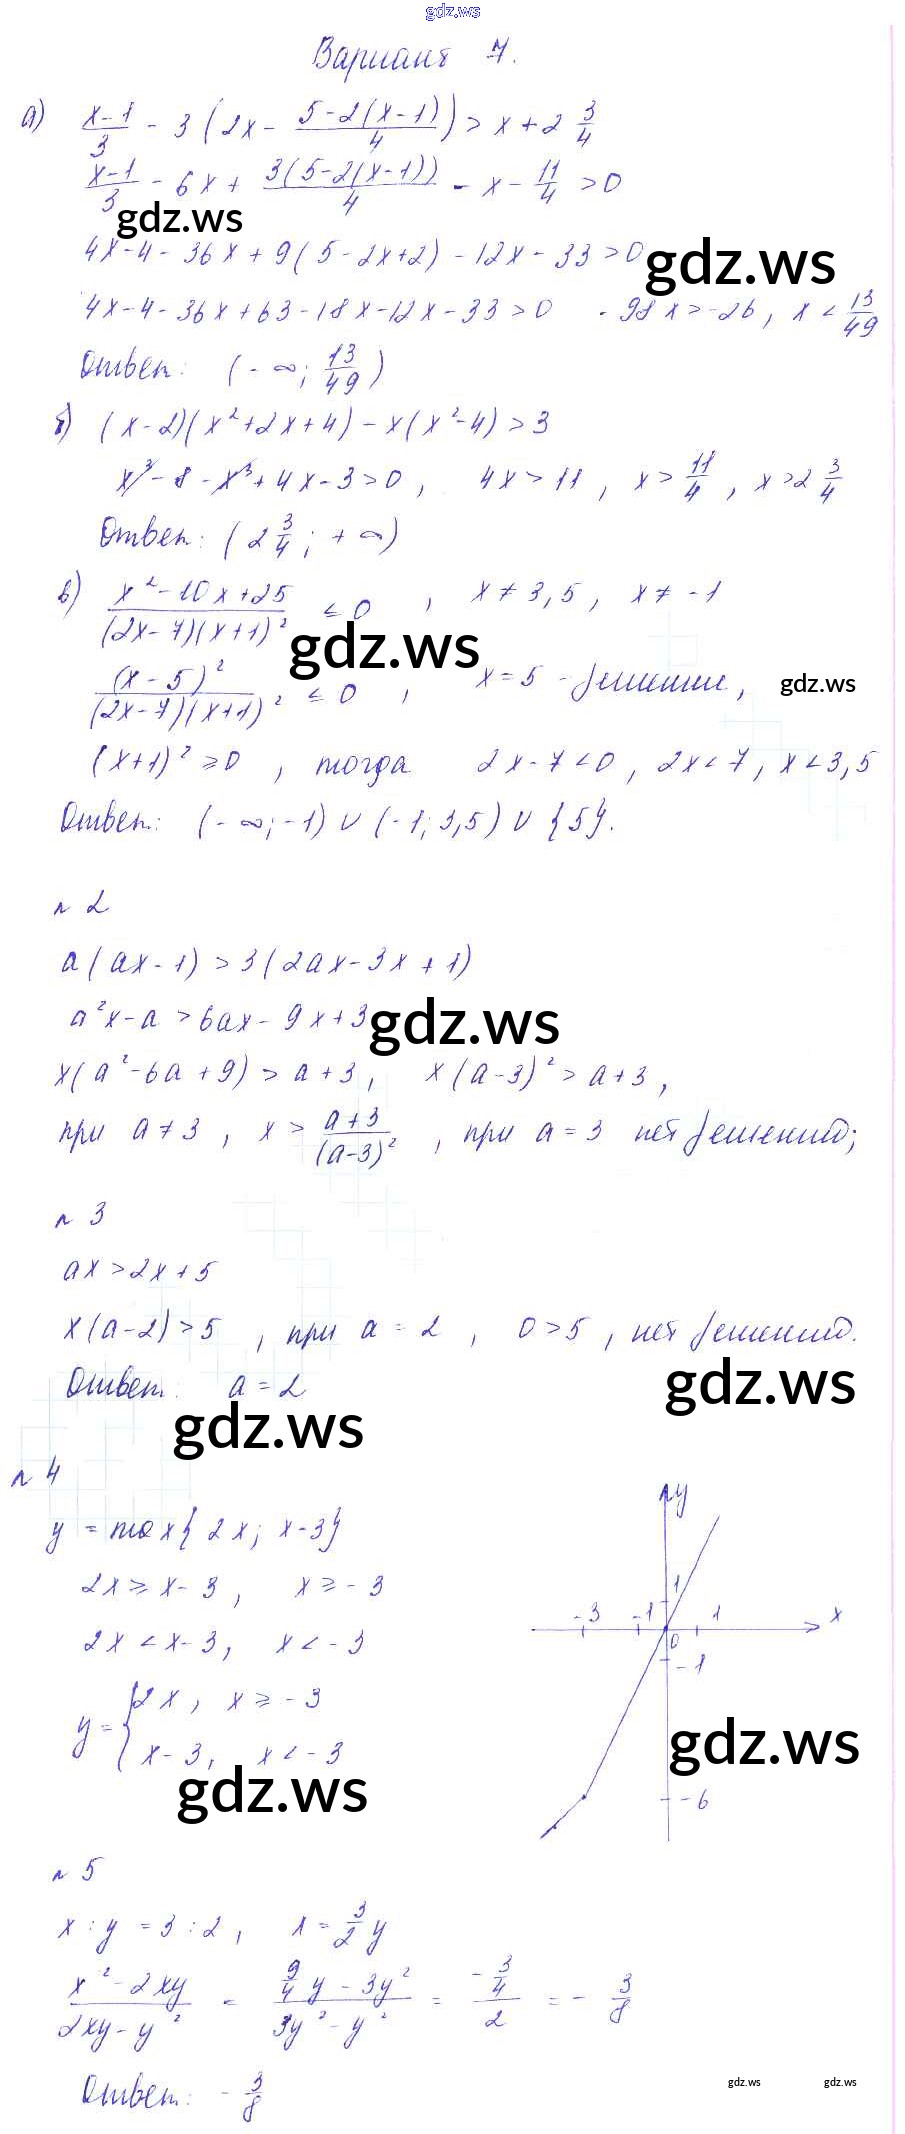 gdz.ws
Вариант 7.
а) (x-1)/3 - 3(2x - (5-2(x-1))/4) > x + 2 3/4
(x-1)/3 - 6x + 3(5-2(x-1))/4 - x - 11/4 > 0
gdz.ws
4x-4-36x+9(5-2x+2)-12x-33>0
gdz.ws
4x-4-36x+63-18x-12x-33>0 -98x>-26, x < 13/49
Ответ: (-∞; 13/49)
б) (x-2)(x²+2x+4)-x(x²-4)>3
x³-8-x³+4x-3>0, 4x>11, x> 11/4, x>2 3/4
Ответ: (2 3/4; +∞)
в) (x²-10x+25)/((2x-7)(x+1)²) ≤ 0, x≠3,5, x≠-1
gdz.ws
(x-5)²/((2x-7)(x+1)²) ≤ 0, x=5 - решение,
gdz.ws
(x+1)² ≥ 0, тогда 2x-7<0, 2x<7, x<3,5
Ответ: (-∞;-1)∪(-1;3,5)∪{5}.
n 2
a(ax-1)>3(2ax-3x+1)
a²x-a>6ax-9x+3
gdz.ws
x(a²-6a+9)>a+3, x(a-3)²>a+3,
при a≠3, x> (a+3)/(a-3)², при a=3 нет решений;
n 3
ax>2x+5
x(a-2)>5, при a=2, 0>5, нет решений.
gdz.ws
Ответ: a=2
gdz.ws
n 4
y = max{2x; x-3}
2x≥x-3, x≥-3
2x<x-3, x<-3
y={2x, x≥-3
x-3, x<-3
y
1
-3 -1 1 x
0
-1
-6
gdz.ws
gdz.ws
n 5
x:y=3:2, x= 3/2 y
(x²-2xy)/(2xy-y²) = (9/4 y-3y²)/(3y²-y²) = (-3/4)/2 = - 3/8
Ответ: - 3/8
gdz.ws gdz.ws